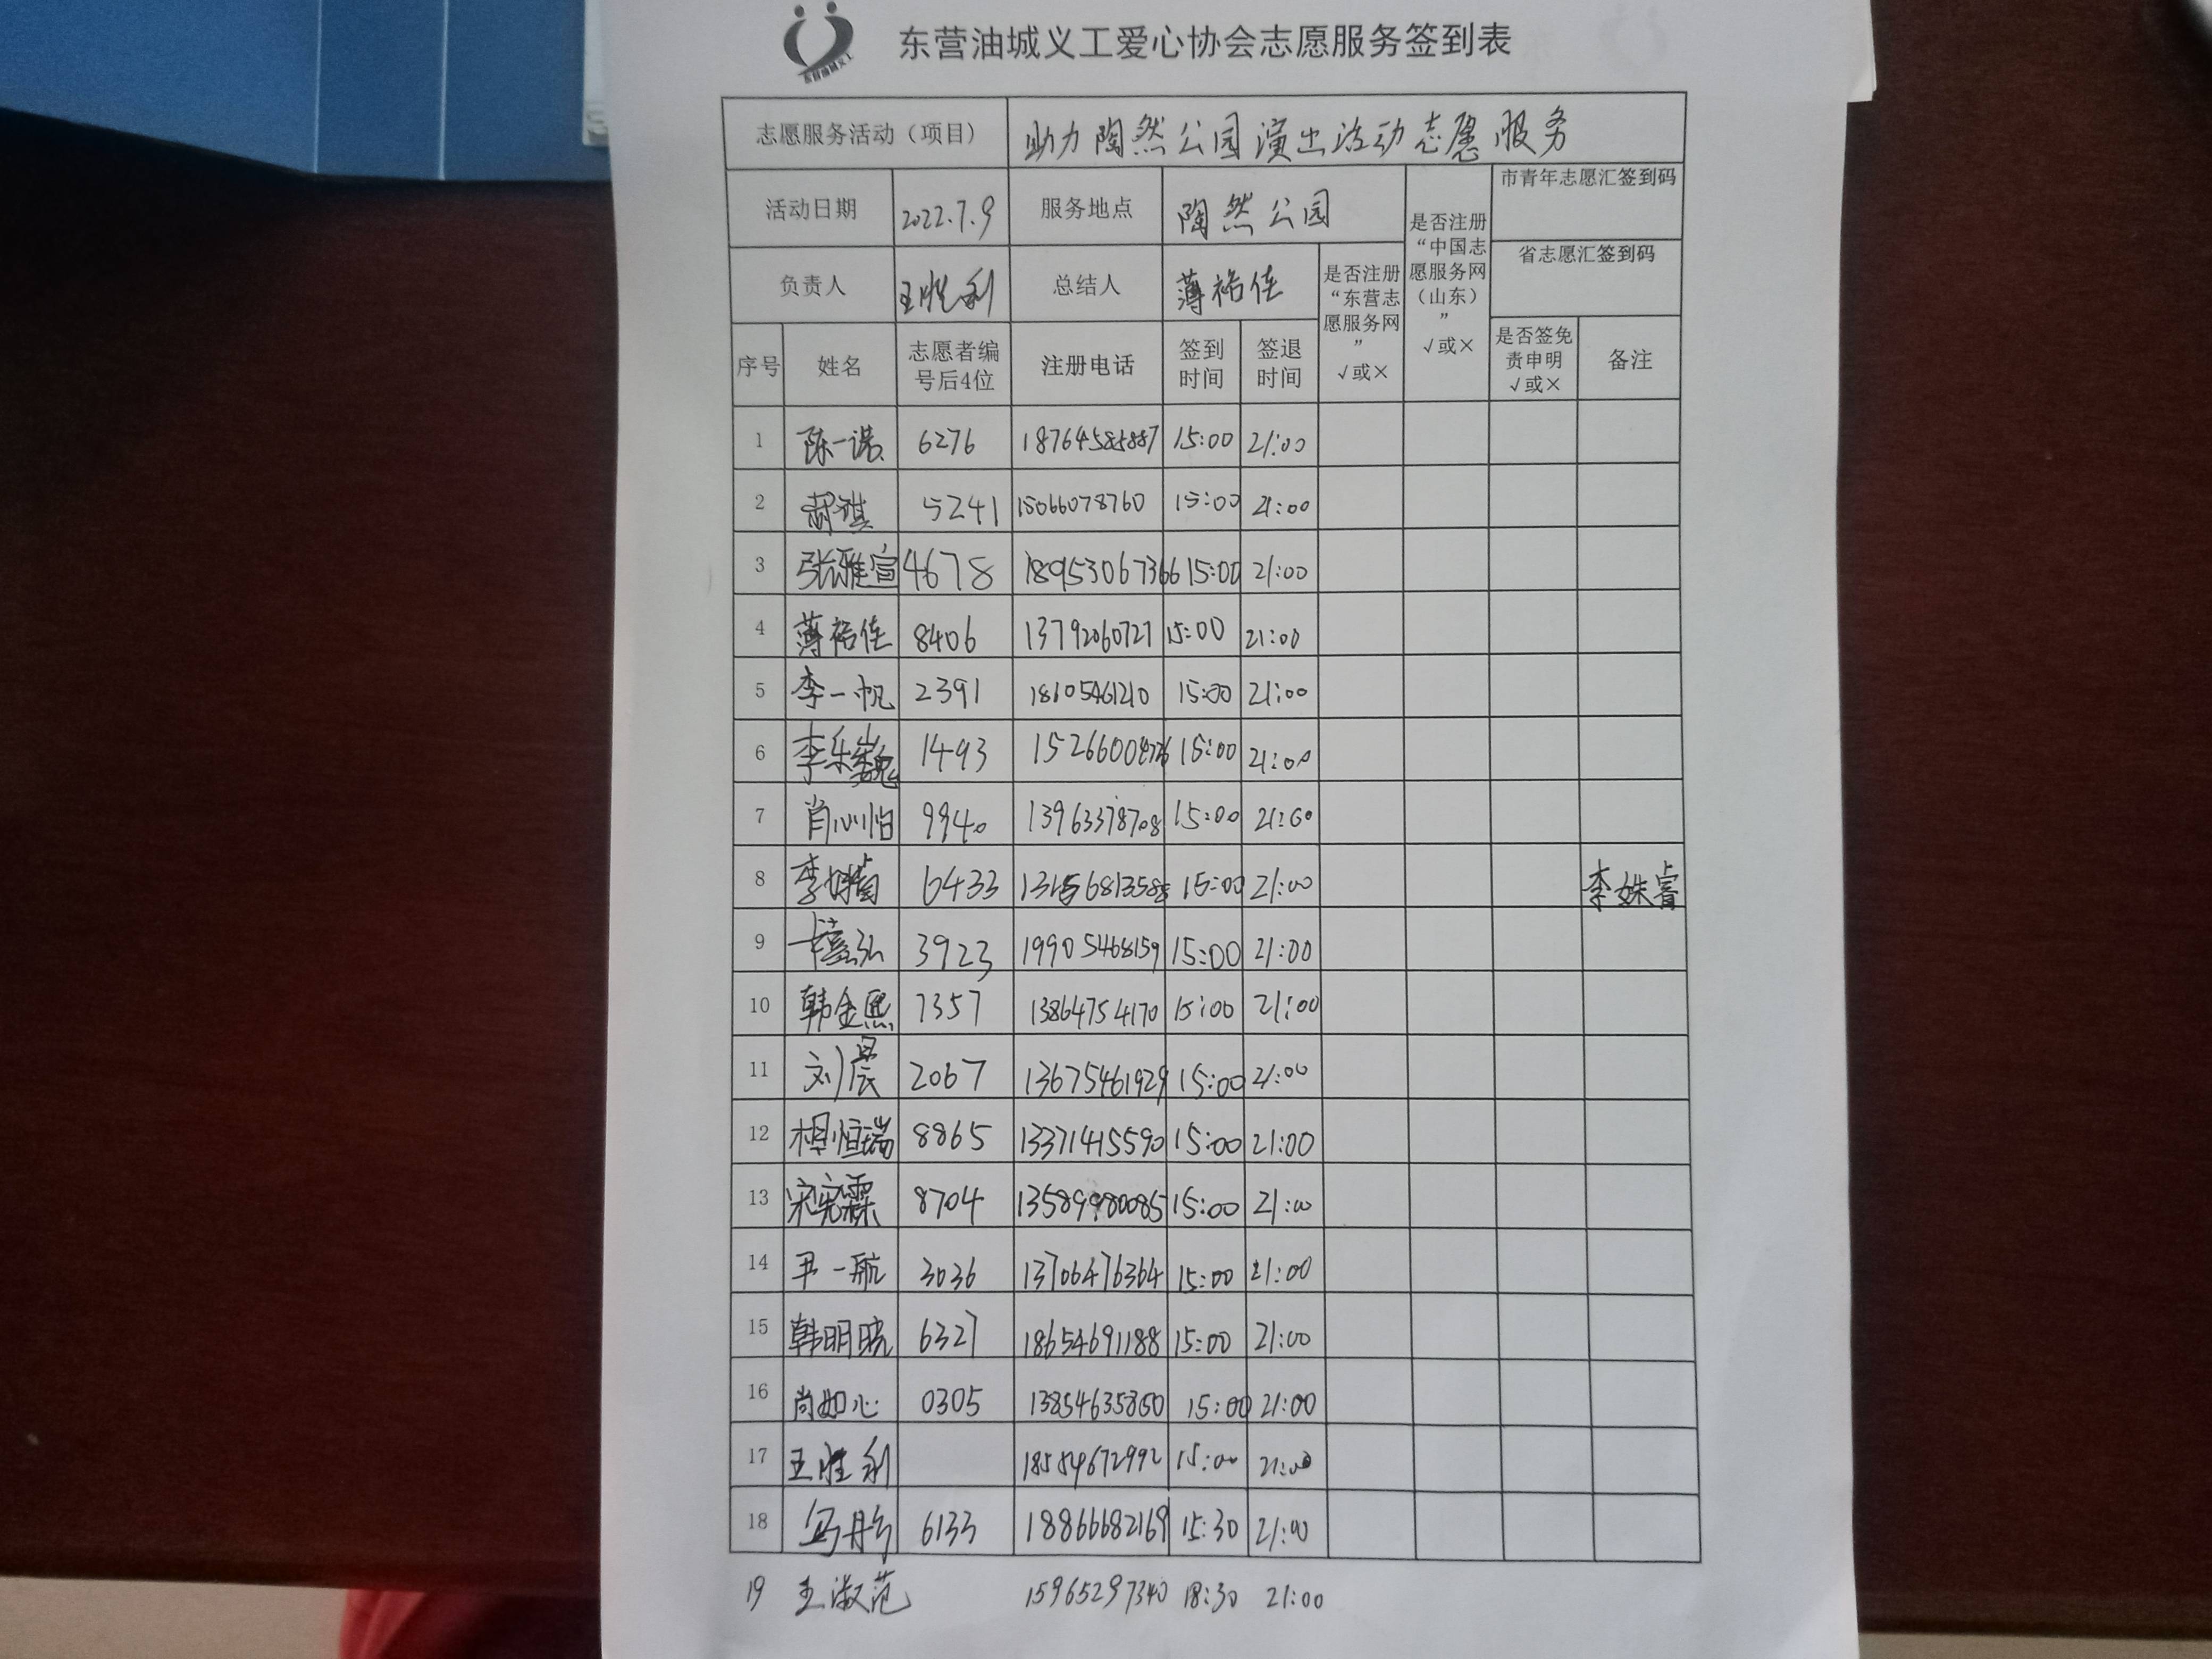 东营油城义工爱心协会志愿服务签到表
志愿服务活动（项目） 助力陶然公园演出活动志愿服务
活动日期 2022.7.9 服务地点 陶然公园 市青年志愿汇签到码
负责人 王胜利 总结人 薄裕佳 省志愿汇签到码
是否注册“东营志愿服务网” √或×
是否注册“中国志愿服务网（山东）” √或×
序号 姓名 志愿者编号后4位 注册电话 签到时间 签退时间 是否签免责申明 √或× 备注
1 陈一诺 6276 18764585887 15:00 21:00
2 5241 15066078760 15:00 21:00
3 张雅宣 4678 18953067366 15:00 21:00
4 薄裕佳 8406 13792060727 15:00 21:00
5 李一帆 2391 18605461210 15:00 21:00
6 李乐巍 1493 15:00 21:00
7 肖心怡 9940 13963378708 15:00 21:00
8 6433 15:00 21:00 李姝睿
9 3923 19905468159 15:00 21:00
10 韩金熙 7357 13864754170 15:00 21:00
11 刘晨 2067 13675461929 15:00 21:00
12 相恒瑞 8865 13371415590 15:00 21:00
13 宋宪霖 8704 13589980085 15:00 21:00
14 尹一航 3036 13706476364 15:00 21:00
15 韩明晓 6327 18654691188 15:00 21:00
16 尚如心 0305 13854635860 15:00 21:00
17 王胜利 18554672992 15:00 21:00
18 6133 18866682169 15:30 21:00
19 王淑范 15965297340 18:30 21:00